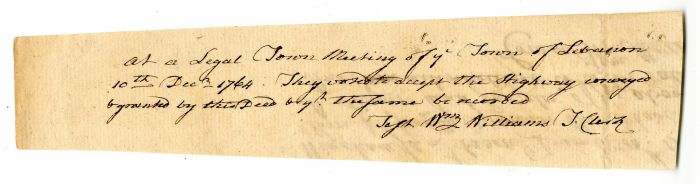 At a Legal Town Meeting of yᵉ Town of Lebanon
10th Decr 1764. They voted to accept the Highway conveyed
& granted by this Deed & yᵗ the same be recorded
Test Wm Williams T. Clerk